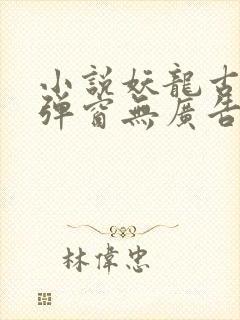 小說妖龍古
彈窗無廣告
林偉忠